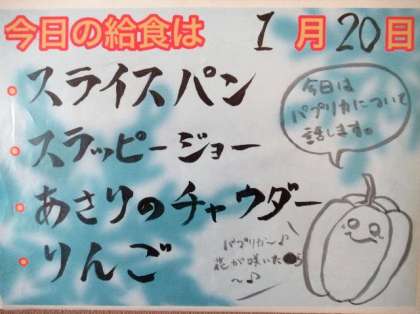 今日の給食は 1月20日
・スライスパン
・スラッピージョー
・あさりのチャウダー
・りんご
今日は
パプリカについて
話します。
パプリカ〜♪
花が咲いたら
〜♪